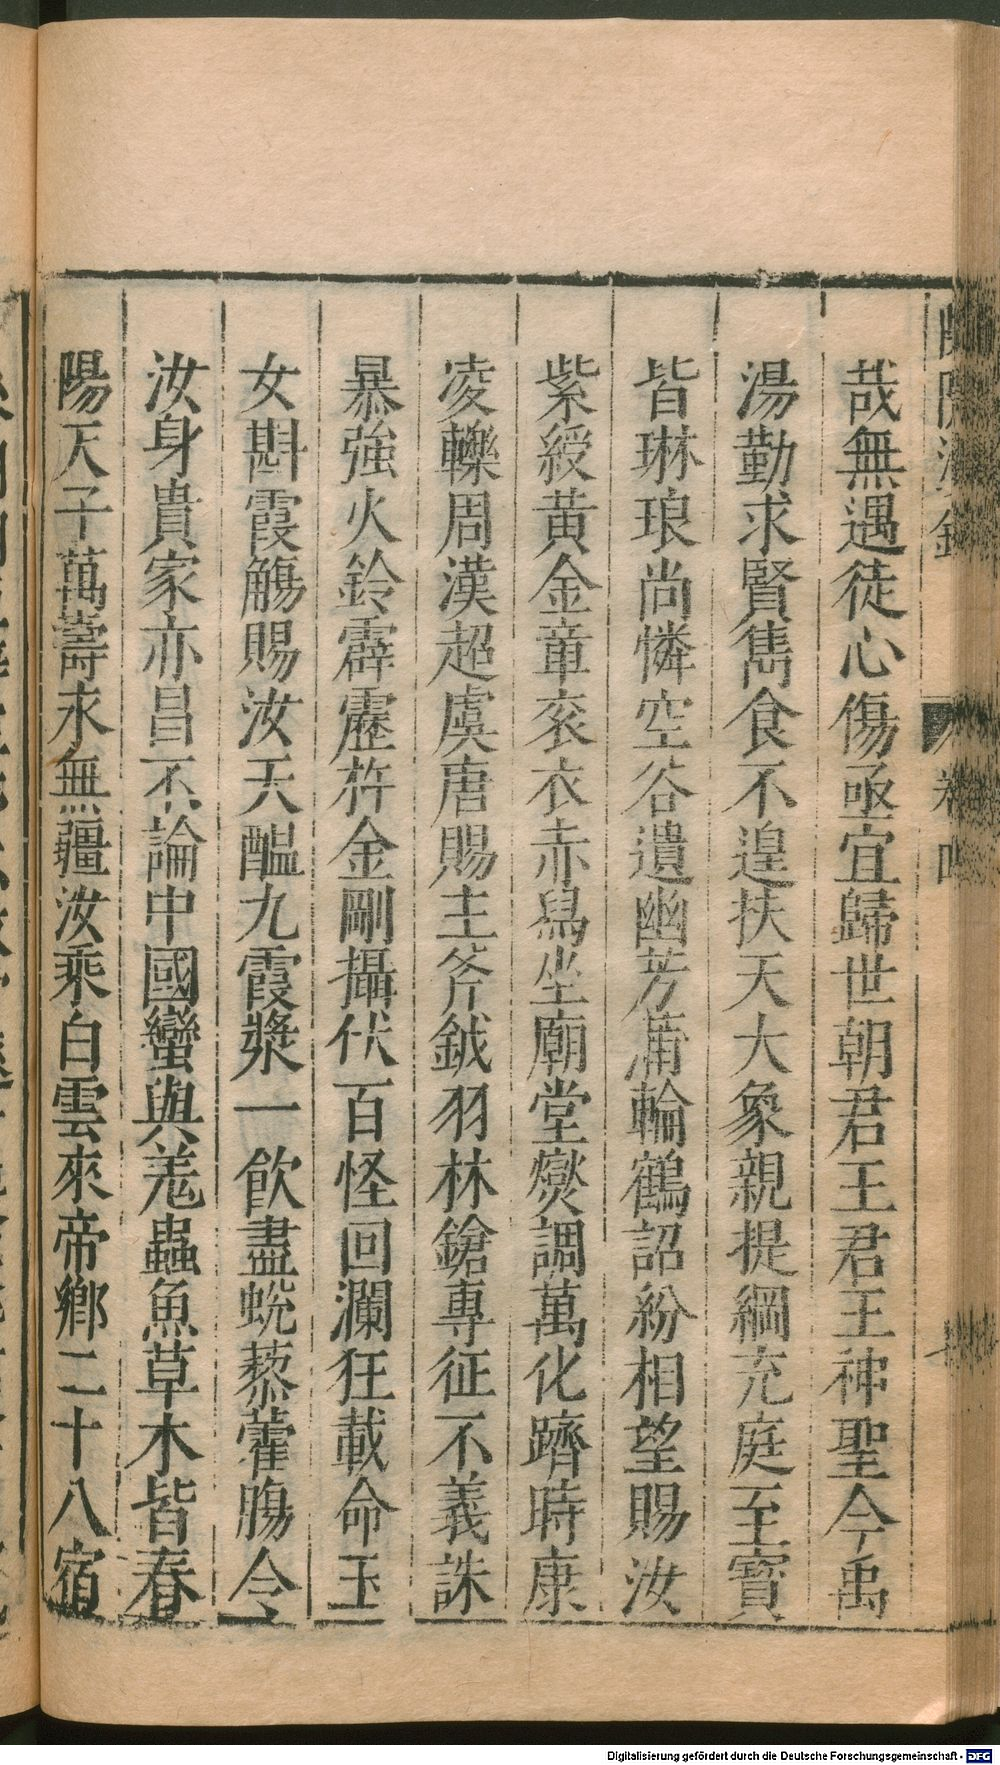 哉無遇徒心傷亟宜歸世朝君王君王神聖今禹
湯勤求賢雋食不遑扶天大象親提綱充庭至寶
皆琳琅尚憐空谷遺幽芳蒲輪鶴詔紛相望賜汝
紫綬黃金章衮衣赤舄坐廟堂燮調萬化躋時康
凌轢周漢超虞唐賜主斧鉞羽林鎗專征不義誅
暴強火鈴霹靂杵金剛攝伏百怪回瀾狂載命玉
女斟霞觴賜汝天醖九霞漿一飲盡蛻藜藿腸令
汝身貴家亦昌不論中國蠻與羗蟲魚草木皆春
陽天子萬壽永無疆汝乘白雲來帝鄉二十八宿
卷四
Digitalisierung gefördert durch die Deutsche Forschungsgemeinschaft - DFG